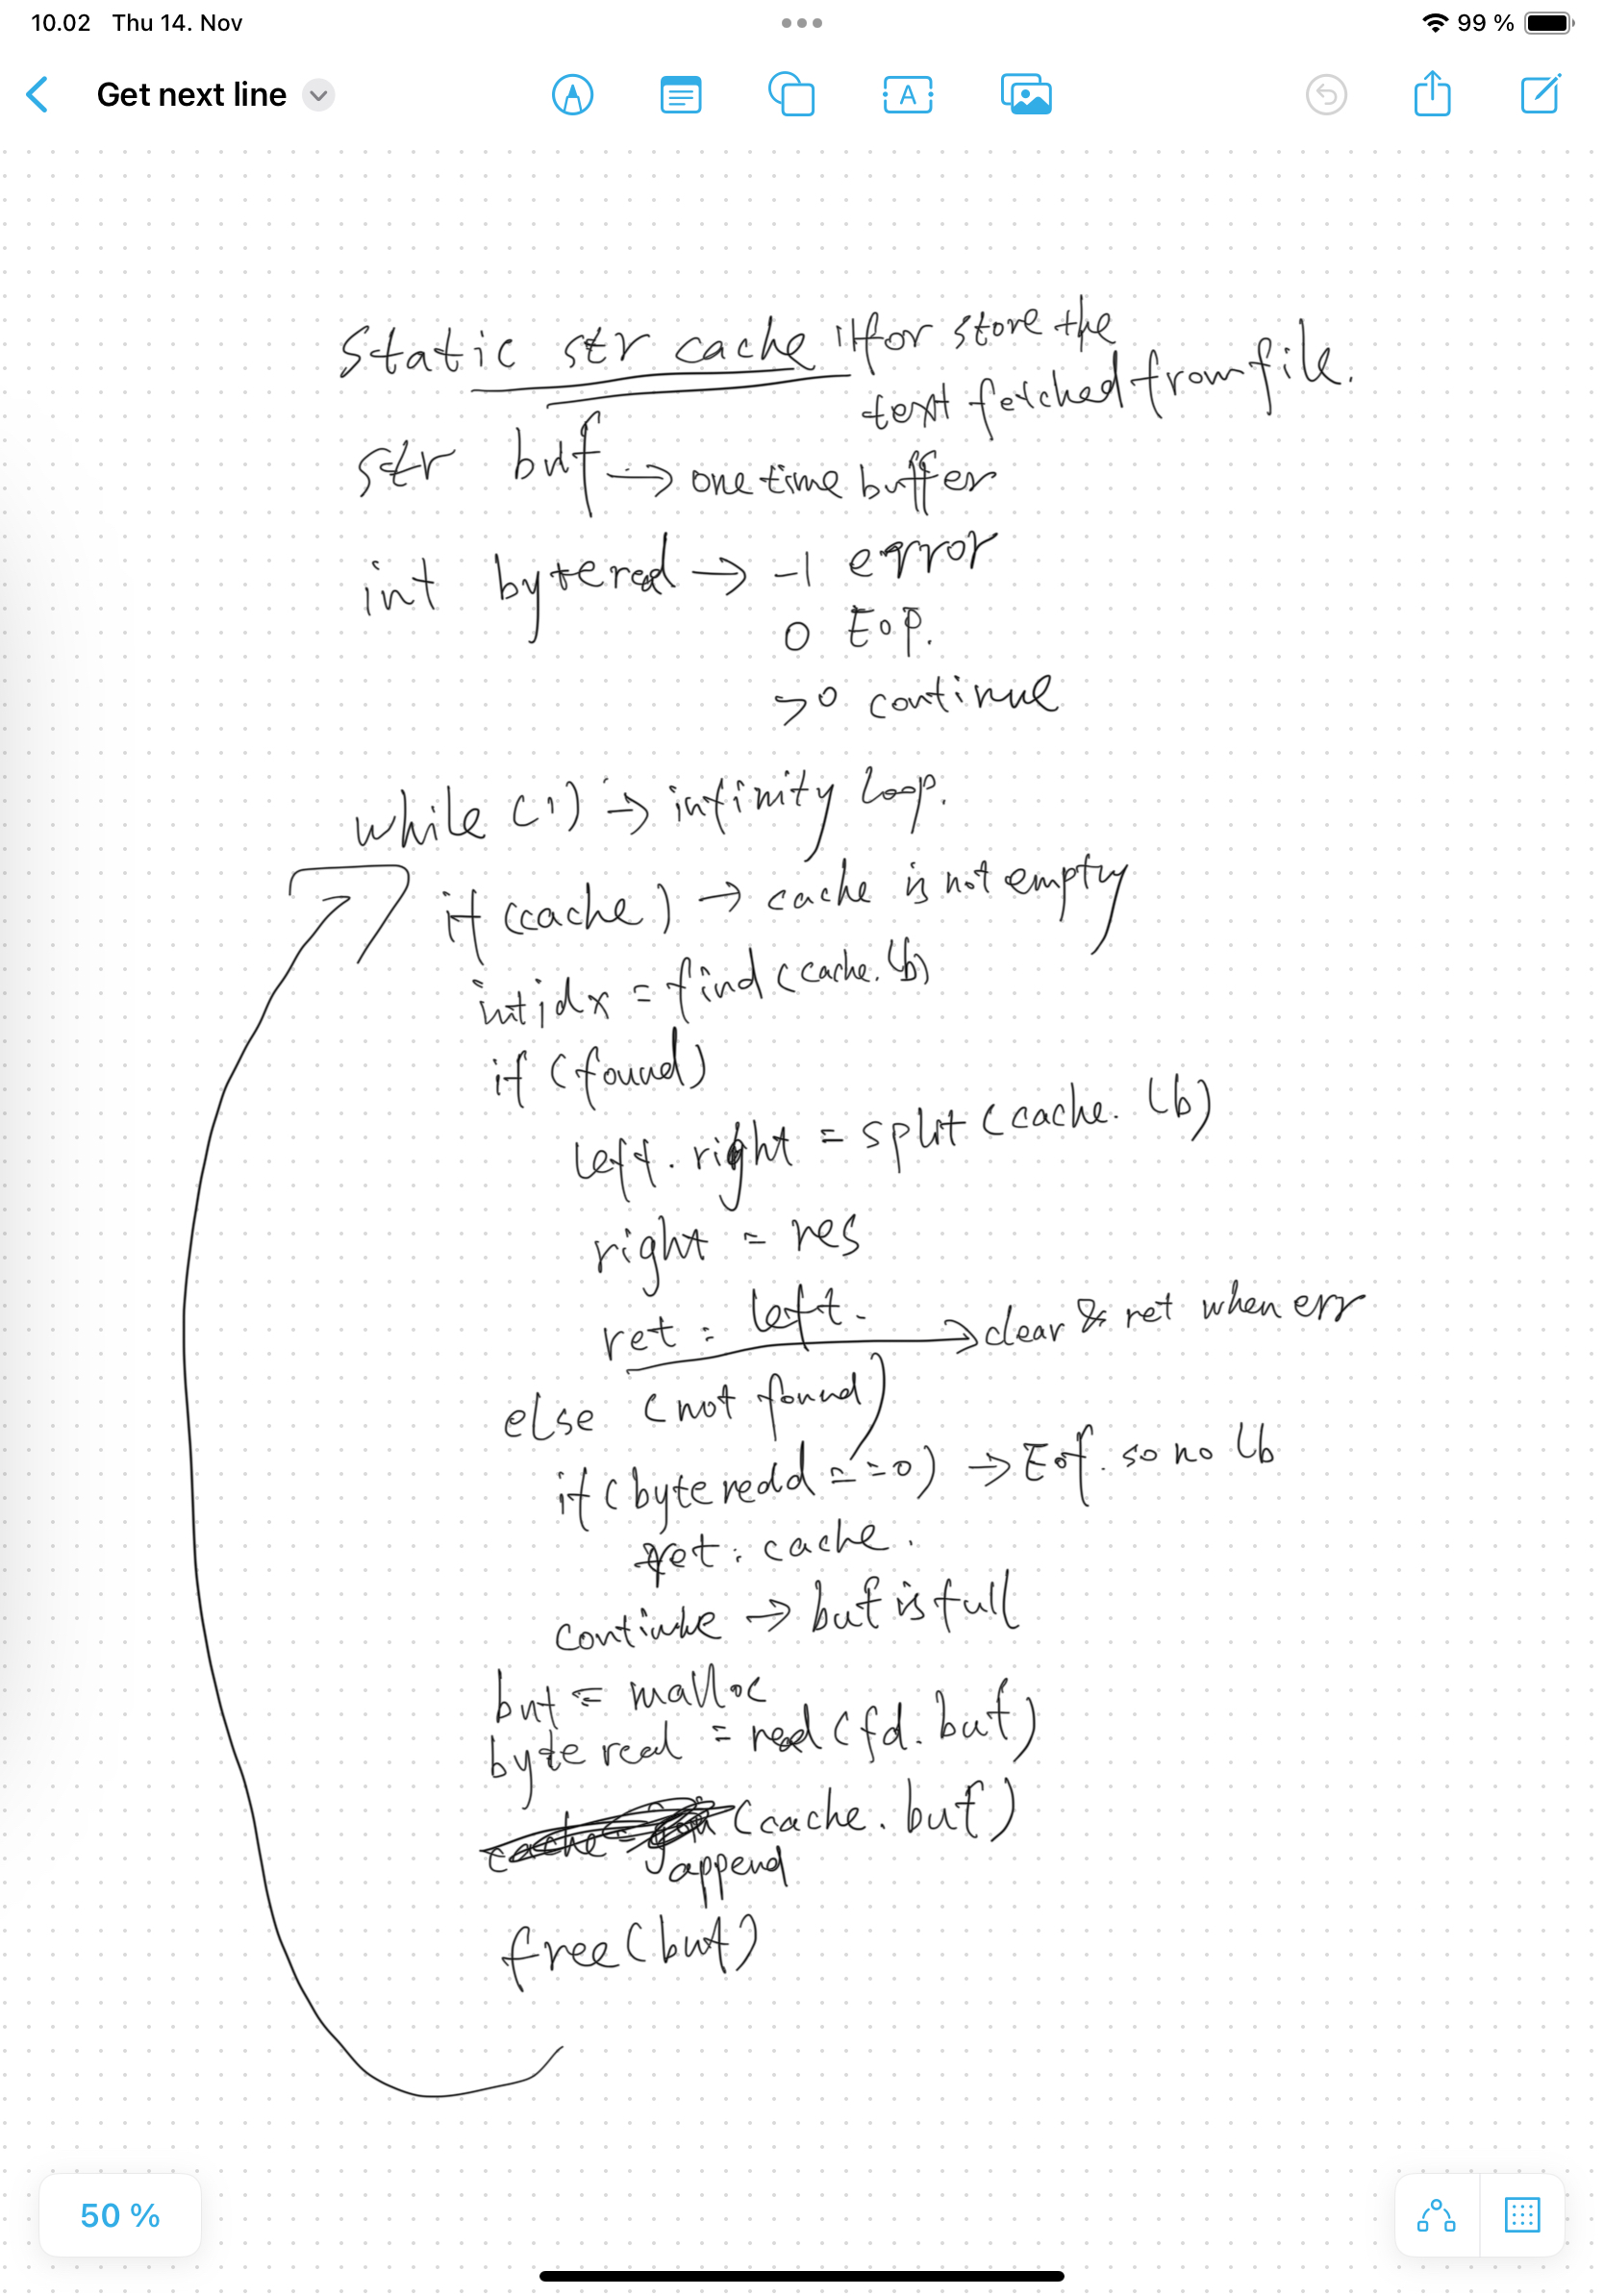 10.02 Thu 14. Nov
99 %
Get next line
A
static str cache //for store the
text fetched from file.
str buf → one time buffer
int byteread → -1 error
0 EOF.
>0 continue
while (1) → infinity loop.
if (cache) → cache is not empty
int idx = find (cache. lb)
if (found)
left. right = split (cache. lb)
right = res
ret : left. → clear & ret when err
else (not found)
if (byteread == 0) → Eof. so no lb
ret : cache.
continue → buf is full
buf = malloc
byteread = read (fd. buf)
(cache. buf)
append
free (buf)
50 %